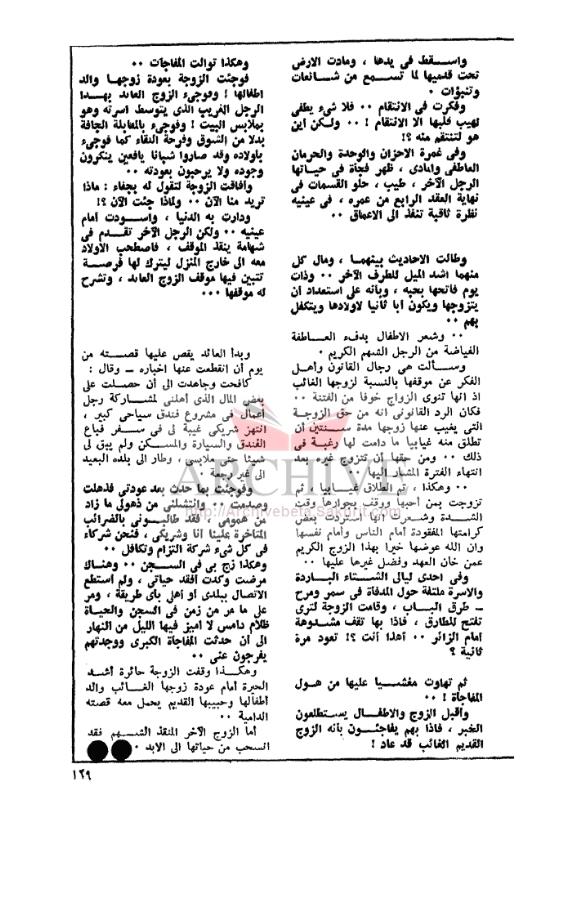 واسـقط فى يدها ، ومادت الارض
تحت قدميها لما تسـمع من شـائعات
وتنبؤات ٠
وفكرت فى الانتقام ٠٠ فلا شىء يطفى
لهيب قلبها الا الانتقام ! ٠٠ ولـكن اين
هو لتنتقم منه ؟!
وفى غمرة الاحزان والوحدة والحرمان
العاطفى والمادى ، ظهر فجأة فى حيـاتها
الرجل الآخر ، طيب ، حلو القسمات فى
نهاية العقد الرابع من عمره ، فى عينيه
نظرة ثاقبة تنفذ الى الاعماق ٠٠
وطالت الاحاديث بينهمـا ، ومال كل
منهما اشد الميل للطرف الآخر ٠٠ وذات
يوم فاتحها بحبه ، وبأنه على استعداد ان
يتزوجها ويكون ابا ثانيا لاولادها ويتكفل
بهم ٠٠
٠٠ وشعر الاطفال بدفء العـاطفة
الفياضة من الرجل الشهم الكريم ٠
وسـألت هى رجال القانون وأهـل
الفكر عن موقفها بالنسبة لزوجها الغائب
اذ انها تنوى الزواج خوفا من الفتنة ٠٠
فكان الرد القانونى انه من حق الزوجـة
التى يغيب عنها زوجها مدة سـنتين أن
تطلق منه غيابيا ما دامت لها رغبـة فى
ذلك ٠٠ ومن حقها أن تتزوج غيره بعد
انتهاء الفترة المشار اليها ٠٠
٠٠ وهكذا ، تم الطلاق غيـابيا ، ثم
تزوجت بمن أحبها ووقف بجوارها وقت
الشـدة وشـعرت أنها استردت بعض
كرامتها المفقودة أمام الناس وأمام نفسها
وان الله عوضها خيرا بهذا الزوج الكريم
عمن خان العهد وفضل غيرها عليها ٠٠
وفى احدى ليالى الشـتاء البـاردة
والاسرة ملتفة حول المدفاة فى سمر ومرح
ـ طرق البـاب ، وقامت الزوجة لترى
تفتح للطارق ، فاذا بها تقف مشـدوهة
امام الزائر ٠٠ أهذا أنت ؟! تعود مرة
ثانية ؟
ثم تهاوت مغشـيا عليها من هـول
المفاجأة ! ٠٠
وأقبل الزوج والاطفـال يسـتطلعون
الخبر ، فاذا بهم يفاجئـون بأنه الزوج
القديم الغائب قد عاد !
وهكذا توالت المفاجآت ٠٠
فوجئت الزوجة بعودة زوجها والد
اطفالها ! وفوجىء الزوج العائد بهـذا
الرجل الغريب الذى يتوسط اسرته وهو
بملابس البيت ! وفوجىء بالمقابلة الجافة
بدلا من الشوق وفرحة اللقاء كما فوجىء
باولاده وقد صاروا شبانا يافعين ينكرون
وجوده ولا يرحبون بعودته ٠٠
وأفاقت الزوجة لتقول له بجفاء : ماذا
تريد منا الآن ٠٠ ولماذا جئت الآن ؟!
ودارت به الدنيا ، واسـودت امام
عينيه ٠٠ ولكن الرجل الآخر تقـدم فى
شهامة ينقذ الموقف ، فاصطحب الاولاد
معه الى خارج المنزل ليترك لها فرصـة
تتبين فيها موقف الزوج العائد ، وتشرح
له موقفها ٠٠٠
وبدأ العائد يقص عليها قصـته من
يوم أن انقطعت عنها أخباره ـ وقال :
كافحت وجاهدت الى أن حصـلت على
بعض المال الذى أهلنى لمشـاركة رجل
أعمال فى مشروع فندق سياحى كبير ،
انتهز شريكى غيبة لى فى سـفر فباع
الفندق والسيارة والمسـكن ولم يبق لى
شيئا حتى ملابسى ، وطار الى بلده البعيد
الى غير رجعة ٠
وفوجئت بما حدث بعد عودتى فذهلت
وصدمت ٠٠ وانتشلنى من ذهولى ما زاد
من همومى ، فقد طالبـونى بالضرائب
المتاخرة علينا انا وشريكى ، فنحن شركاء
فى كل شىء شركة التزام وتكافل ٠٠
وهكذا زج بى فى السـجن ٠٠ وهنـاك
مرضت وكدت افقد حياتى ، ولم استطع
الاتصال ببلدى او اهلى باى طريقة ، ومر
على ما مر من زمن فى السجن والحيـاة
ظلام دامس لا اميز فيها الليل من النهار
الى أن حدثت المفاجأة الكبرى ووجدتهم
يفرجون عنى ٠٠
وهكـذا وقفت الزوجة حائرة أشـد
الحيرة أمام عودة زوجها الغـائب والد
أطفالها وحبيبها القديم يحمل معه قصته
الدامية ٠٠
أما الزوج الآخر المنقذ الشـهم فقد
انسحب من حياتها الى الابد ٠
١٢٩
ARCHIVE
http://Archivebeta.Sakhrit.com